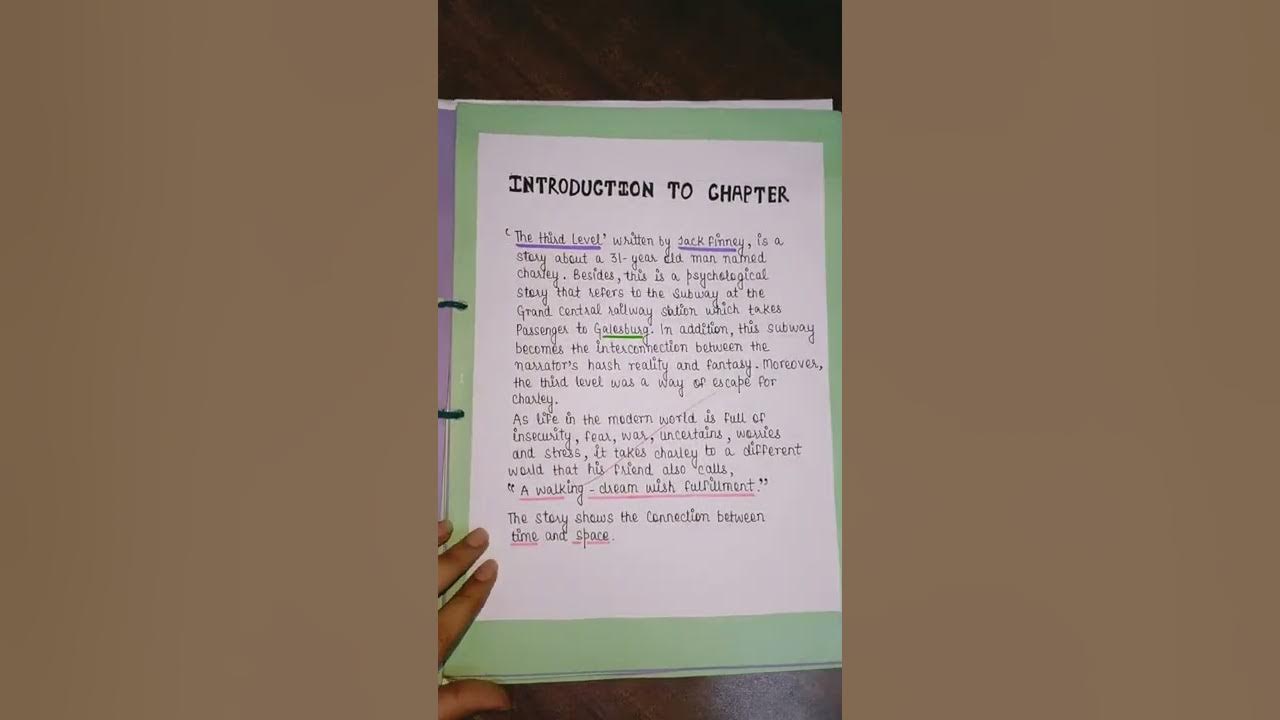 INTRODUCTION TO CHAPTER
'The third Level' written by Jack Finney, is a
story about a 31-year old man named
charley. Besides, this is a psychological
story that refers to the subway at the
Grand central railway station which takes
Passenger to Galesburg. In addition, this subway
becomes the interconnection between the
narrator's harsh reality and fantasy. Moreover,
the third level was a way of escape for
charley.
As life in the modern world is full of
insecurity, fear, war, uncertains, worries
and stress, it takes charley to a different
world that his friend also calls,
"A walking-dream wish fulfillment."
The story shows the Connection between
time and space.